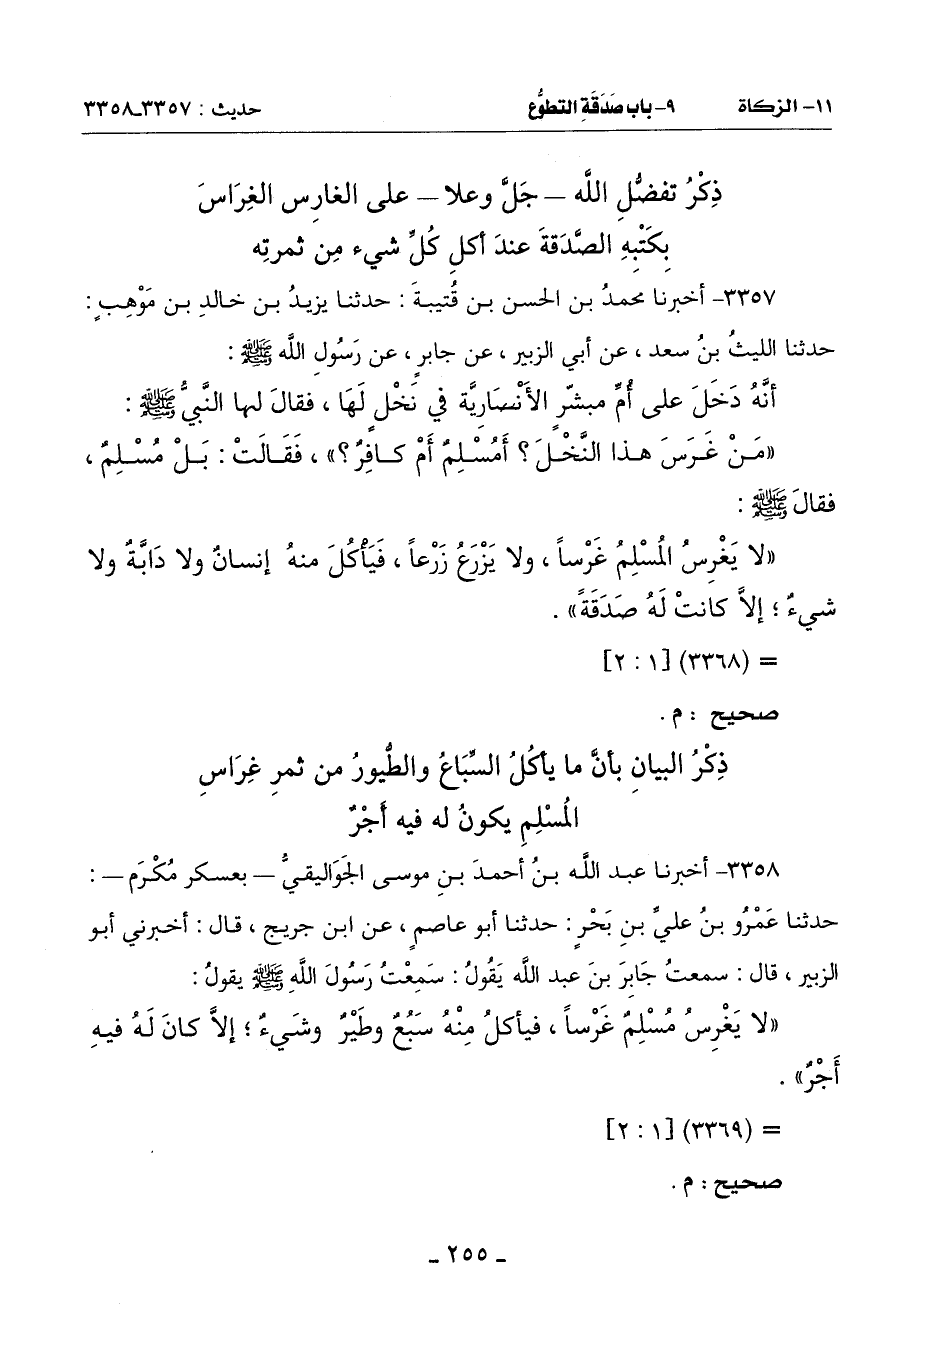 ١١- الزكاة ٩- باب صَدَقَةِ التطوُّع حديث : ٣٣٥٧ـ٣٣٥٨
ذِكْرُ تفضُّلِ اللَّه – جَلَّ وعلا – على الغارِسِ الغِرَاسَ
بِكَتْبِهِ الصَّدَقةَ عندَ أكلِ كُلِّ شيء مِن ثمرتِه
٣٣٥٧- أخبرنا محمدُ بن الحسن بن قُتيبةَ : حدثنا يزيدُ بن خالدِ بن مَوْهِبٍ :
حدثنا الليثُ بنُ سعد ، عن أبي الزبير ، عن جابرٍ ، عن رَسُولِ اللَّه ﷺ :
أنَّهُ دَخَلَ على أُمِّ مبشّرٍ الأَنْصاريَّة في نَخْلٍ لَهَا ، فقالَ لها النَّبيُّ ﷺ :
«مَنْ غَرَسَ هذا النَّخْلَ ؟ أَمُسْلِمٌ أَمْ كافِرٌ ؟» ، فَقَالَتْ : بَلْ مُسْلِمٌ ،
فقالَ ﷺ :
«لا يَغْرِسُ المُسْلِمُ غَرْساً ، ولا يَزْرَعُ زَرْعاً ، فَيَأْكُلَ منهُ إنسانٌ ولا دَابَّةٌ ولا
شيءٌ ؛ إلاَّ كانتْ لَهُ صَدَقَةً» .
= (٣٣٦٨) [١ : ٢]
صحيح : م .
ذِكْرُ البيانِ بأنَّ ما يأكُلُ السِّبَاعُ والطُّيورُ من ثمرِ غِرَاسِ
المُسْلِمِ يكونُ له فيه أَجْرٌ
٣٣٥٨- أخبرنا عبد اللَّه بنُ أحمدَ بنِ موسى الجَوَاليقيُّ – بعسكر مُكْرَم – :
حدثنا عَمْرُو بنُ عليِّ بنِ بَحْرٍ : حدثنا أبو عاصمٍ ، عن ابن جريج ، قال : أخبرني أبو
الزبير ، قال : سمعتُ جَابرَ بنَ عبد اللَّه يَقُولُ : سَمِعْتُ رَسُولَ اللَّهِ ﷺ يقولُ :
«لا يَغْرِسُ مُسْلِمٌ غَرْساً ، فيأكلُ مِنْهُ سَبُعٌ وطَيْرٌ وشَيءٌ ؛ إلاَّ كانَ لَهُ فيهِ
أَجْرٌ» .
= (٣٣٦٩) [١ : ٢]
صحيح : م .
- ٢٥٥ -